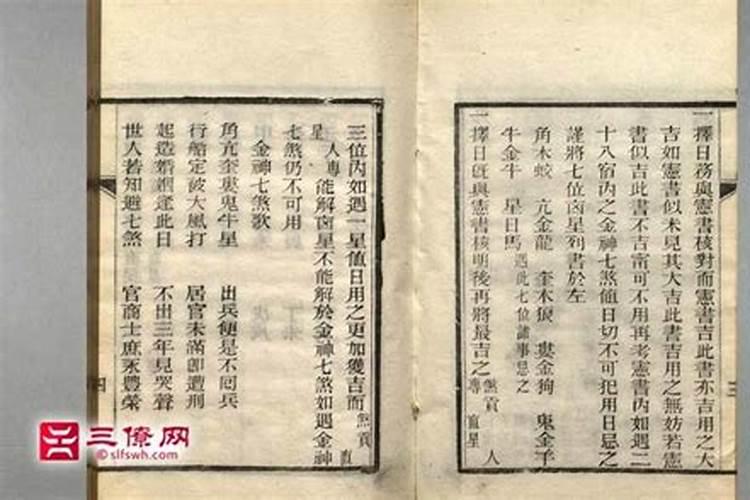 一擇日務與憲書核對而憲書吉此書亦吉用之大
吉如憲書似未見其大吉此書吉用之無妨若憲
書似吉此書不吉甯可不用再考憲書內如遇二
十八宿內之金神七煞値日切不可犯用日忌之
謹將七位凶星列書於左
角木蛟 亢金龍 奎木狼 婁金狗 鬼金羊
牛金牛 星日馬 遇此七位諸事忌之
一擇日旣與憲書核明後再將最吉之 煞貢 專 直星 人
三位內如遇一星値日用之更加獲吉而 煞貢 直
星 人專 能解凶星不能解於金神七煞如遇金神
七煞仍不可用
金神七煞歌
角亢奎婁鬼牛星 出兵便是不囘兵
行船定被大風打 居官未滿卽遭刑
起造婚姻逢此日 不出三年見哭聲
世人若知避七煞 官商士庶永豐榮
三
四
三僚网
©slfswh.com